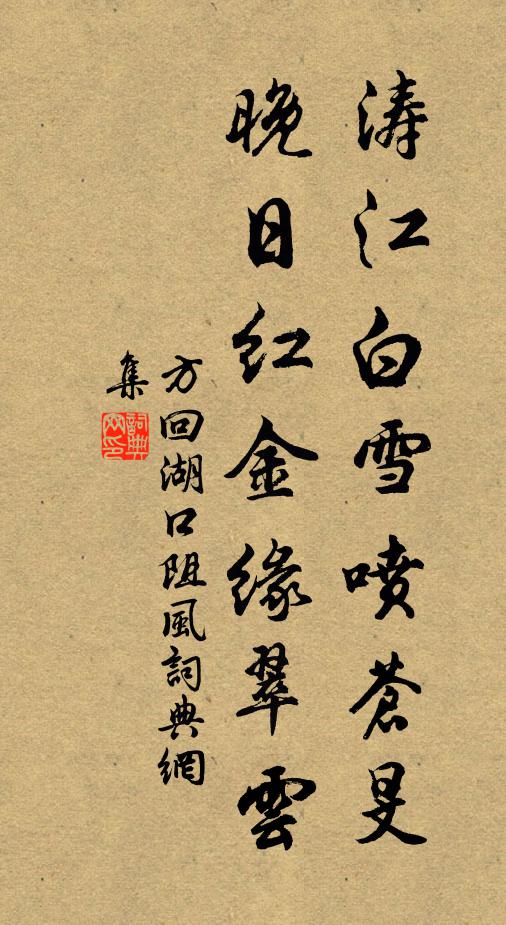 涛江白雪喷苍旻
晚日红金缘翠雲
方回湖口阻風詞典網
集
詞典网印